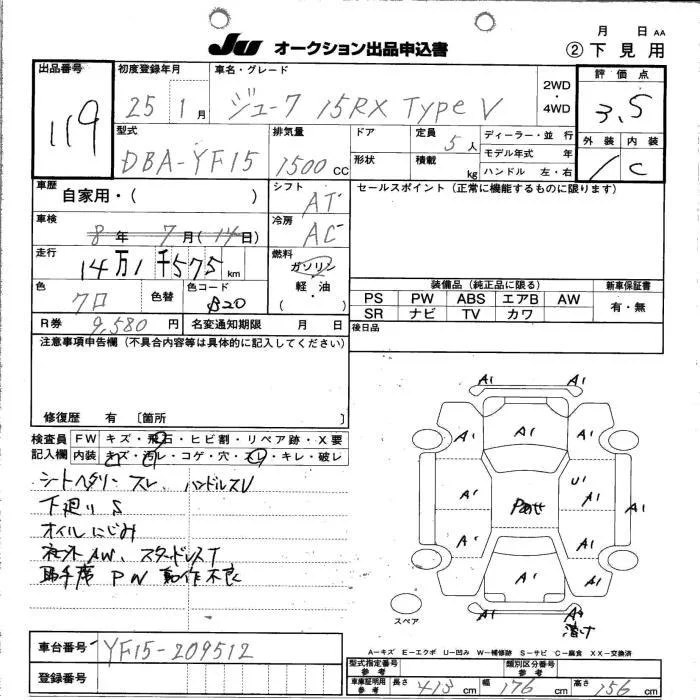 Ju オークション出品申込書
月 日 AA
② 下見用
出品番号
119
初度登録年月
25 1月
車名・グレード
ジューク 15RX Type V
2WD
・
4WD
評価点
3.5
外装 内装
C
型式
DBA-YF15
排気量
1500 CC
ドア
形状
定員
5人
積載
kg
ディーラー・並 行
モデル年式 年
ハンドル 左・右
車歴
自家用・( )
シフト
AT
セールスポイント (正常に機能するものに限ります)
車検
8年 7月(14日)
冷房
AC
走行
14万1千575km
燃料
ガソリン
・
軽・油
( )
色
クロ
色替
色コード
B20
装備品 (純正品に限る)
新車保証書
PS PW ABS エアB AW
SR ナビ TV カワ
有・無
R券 9,580円
名変通知期限 月 日
後日品
注意事項申告欄 (不具合内容等は具体的に記入してください)
修復歴 有 [箇所 ]
検査員
記入欄
FW キズ・飛石・ヒビ割・リペア跡・X要
内装 キズ・汚レ・コゲ・穴・スレ・キレ・破レ
シートヘタリー スレ、ハンドルスレ
下廻り S
オイルにじみ
社外AW、スタッドレスT
助手席 PW 動作不良
A1 A1
A1 A1 A1
A1 Pあせ U1 A1
A1 A1
A1
A1 A1
スペア
A-キズ E-エクボ U-凹み W-補修跡 S-サビ C-腐食 XX-交換済
車台番号
YF15-209512
登録番号
型式指定番号
参考
類別区分番号
参考
車庫証明用
参考
長さ 413 cm 幅 176 cm 高さ 156 cm